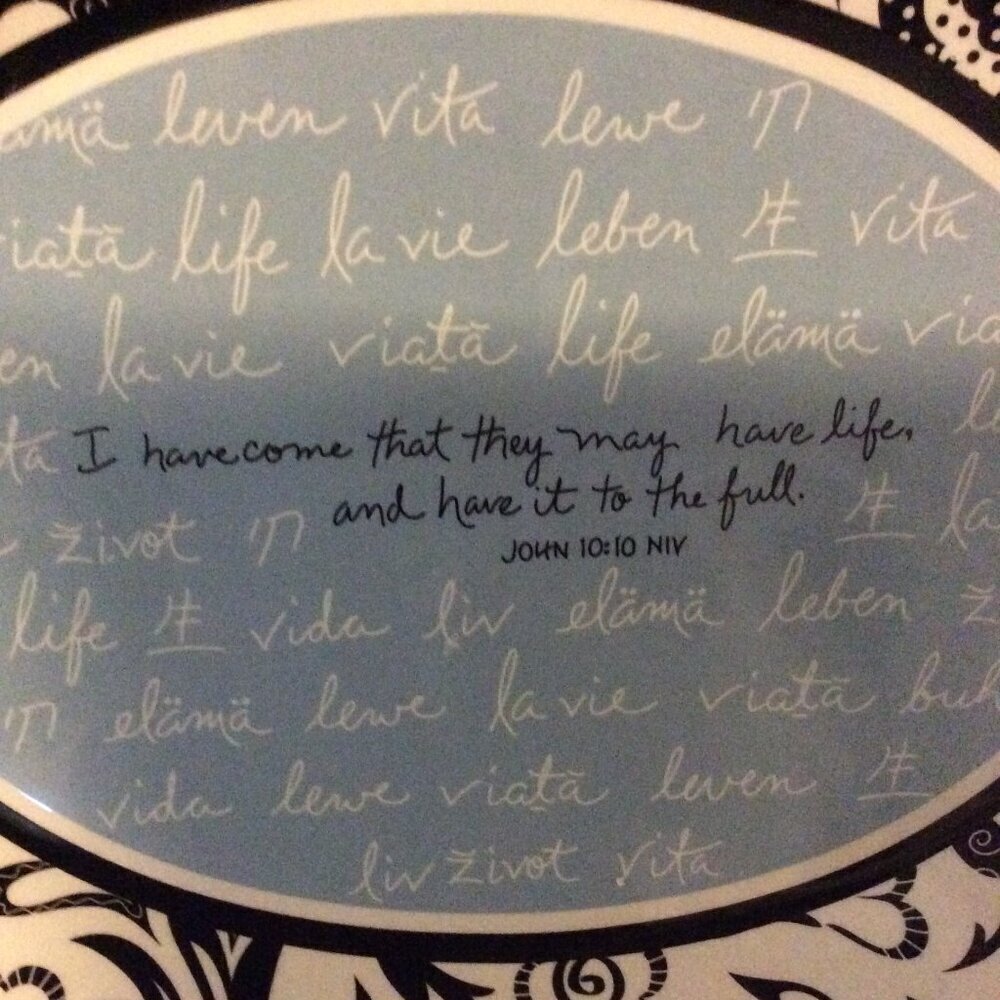 leven vita lewe חי
viaţă life la vie leben 生 vita
la vie viaţă life elämä
I have come that they may have life,
and have it to the full.
život חי 生 la
JOHN 10:10 NIV
life 生 vida liv elämä leben
חי elämä lewe la vie viaţă
vida lewe viaţă leven 生
liv život vita